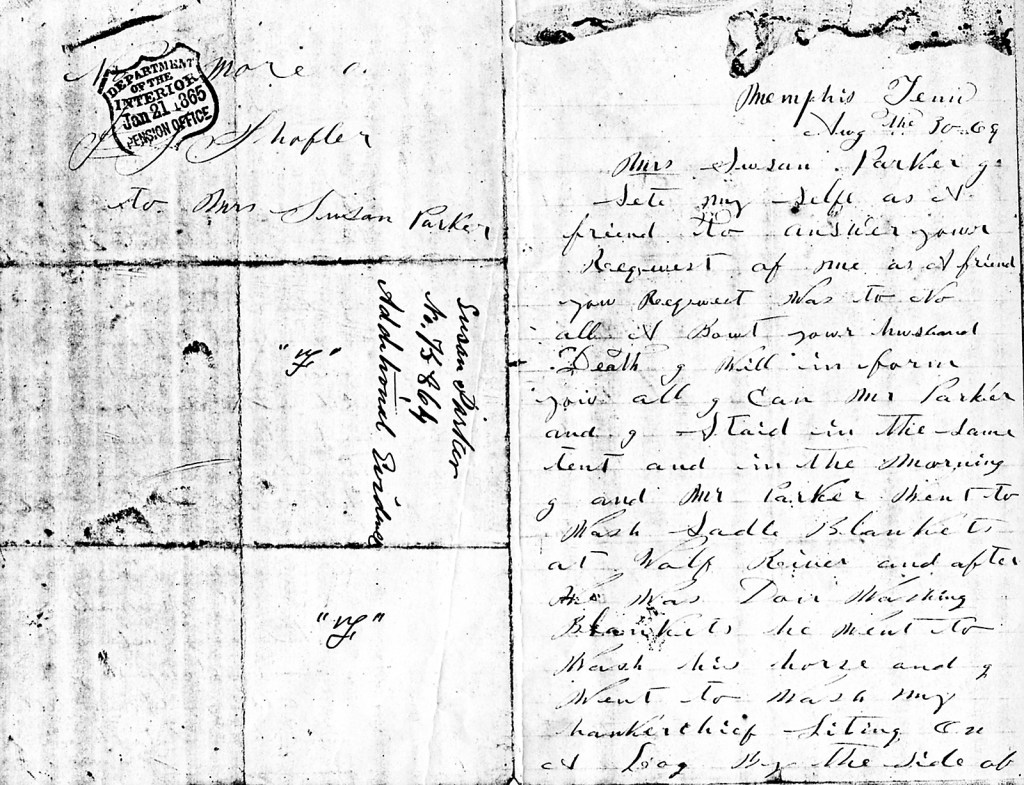 No more a.
DEPARTMENT
OF THE
INTERIOR
Jan 21 1865
PENSION OFFICE
Shofler
to Mrs Swsan Parker
Susan Parker
No. 75864
Additional Evidence
Memphis Tenn
Aug the 30-69
Mrs Swsan Parker g
Sete my Selft as A
friend to answer your
Reqwest of me as A friend
yow Reqwest Was to No
all A Bowt your hwsband
Death g Will in form
yow all g Can Mr Parker
and g Staid in the Same
tent and in the Morning
g and Mr Parker Went to
Wash Sadle Blankets
at Wolf Reiver and after
he Was Don Washing
Blankets he Went to
Wash his horse and g
Went to Wash my
hankerchief Siting On
A Loog By the Side of